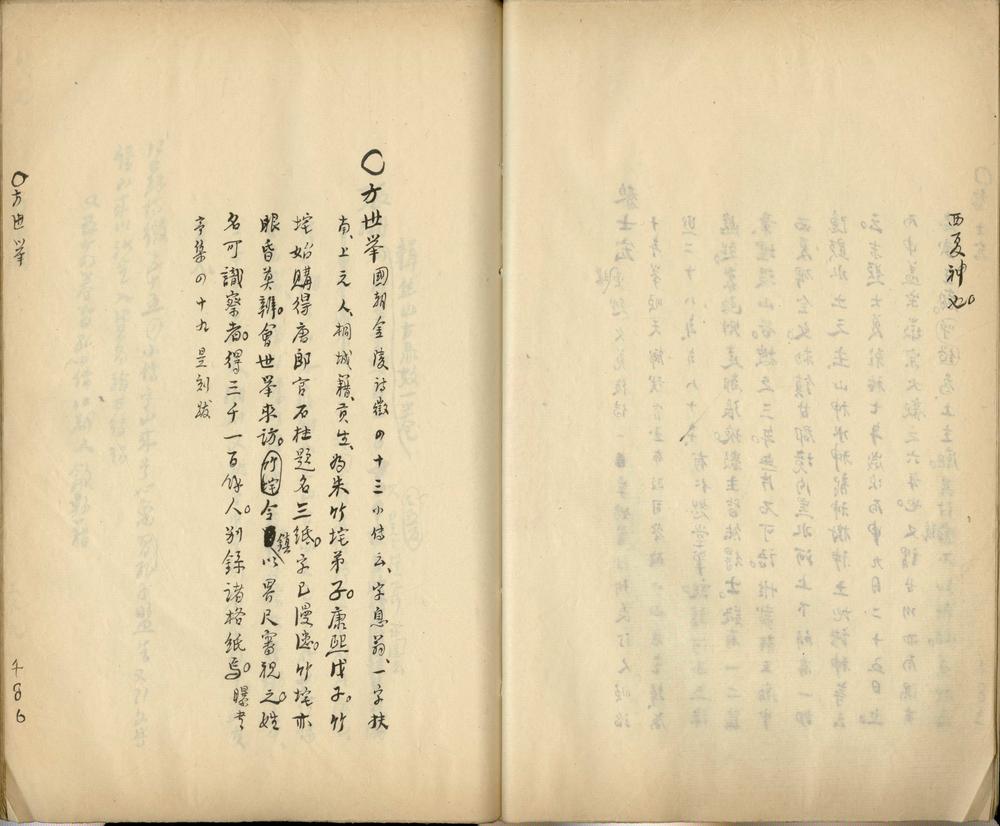 西夏神也。
〇方世举國朝金陵詩徵の十三小傳云、字息翁、一字扶
南、上元人、桐城籍、貢生、為朱竹垞弟子。康熙戊子。竹
垞始購得唐郎官石柱題名三紙。字已漫漶。竹垞亦
眼昏莫辨。會世举來訪。竹垞令鎮以界尺審視之。姓
名可識察者。得三千一百餘人。别錄諸格紙焉。曝書
亭集の十九是刻跋
〇方世举
486